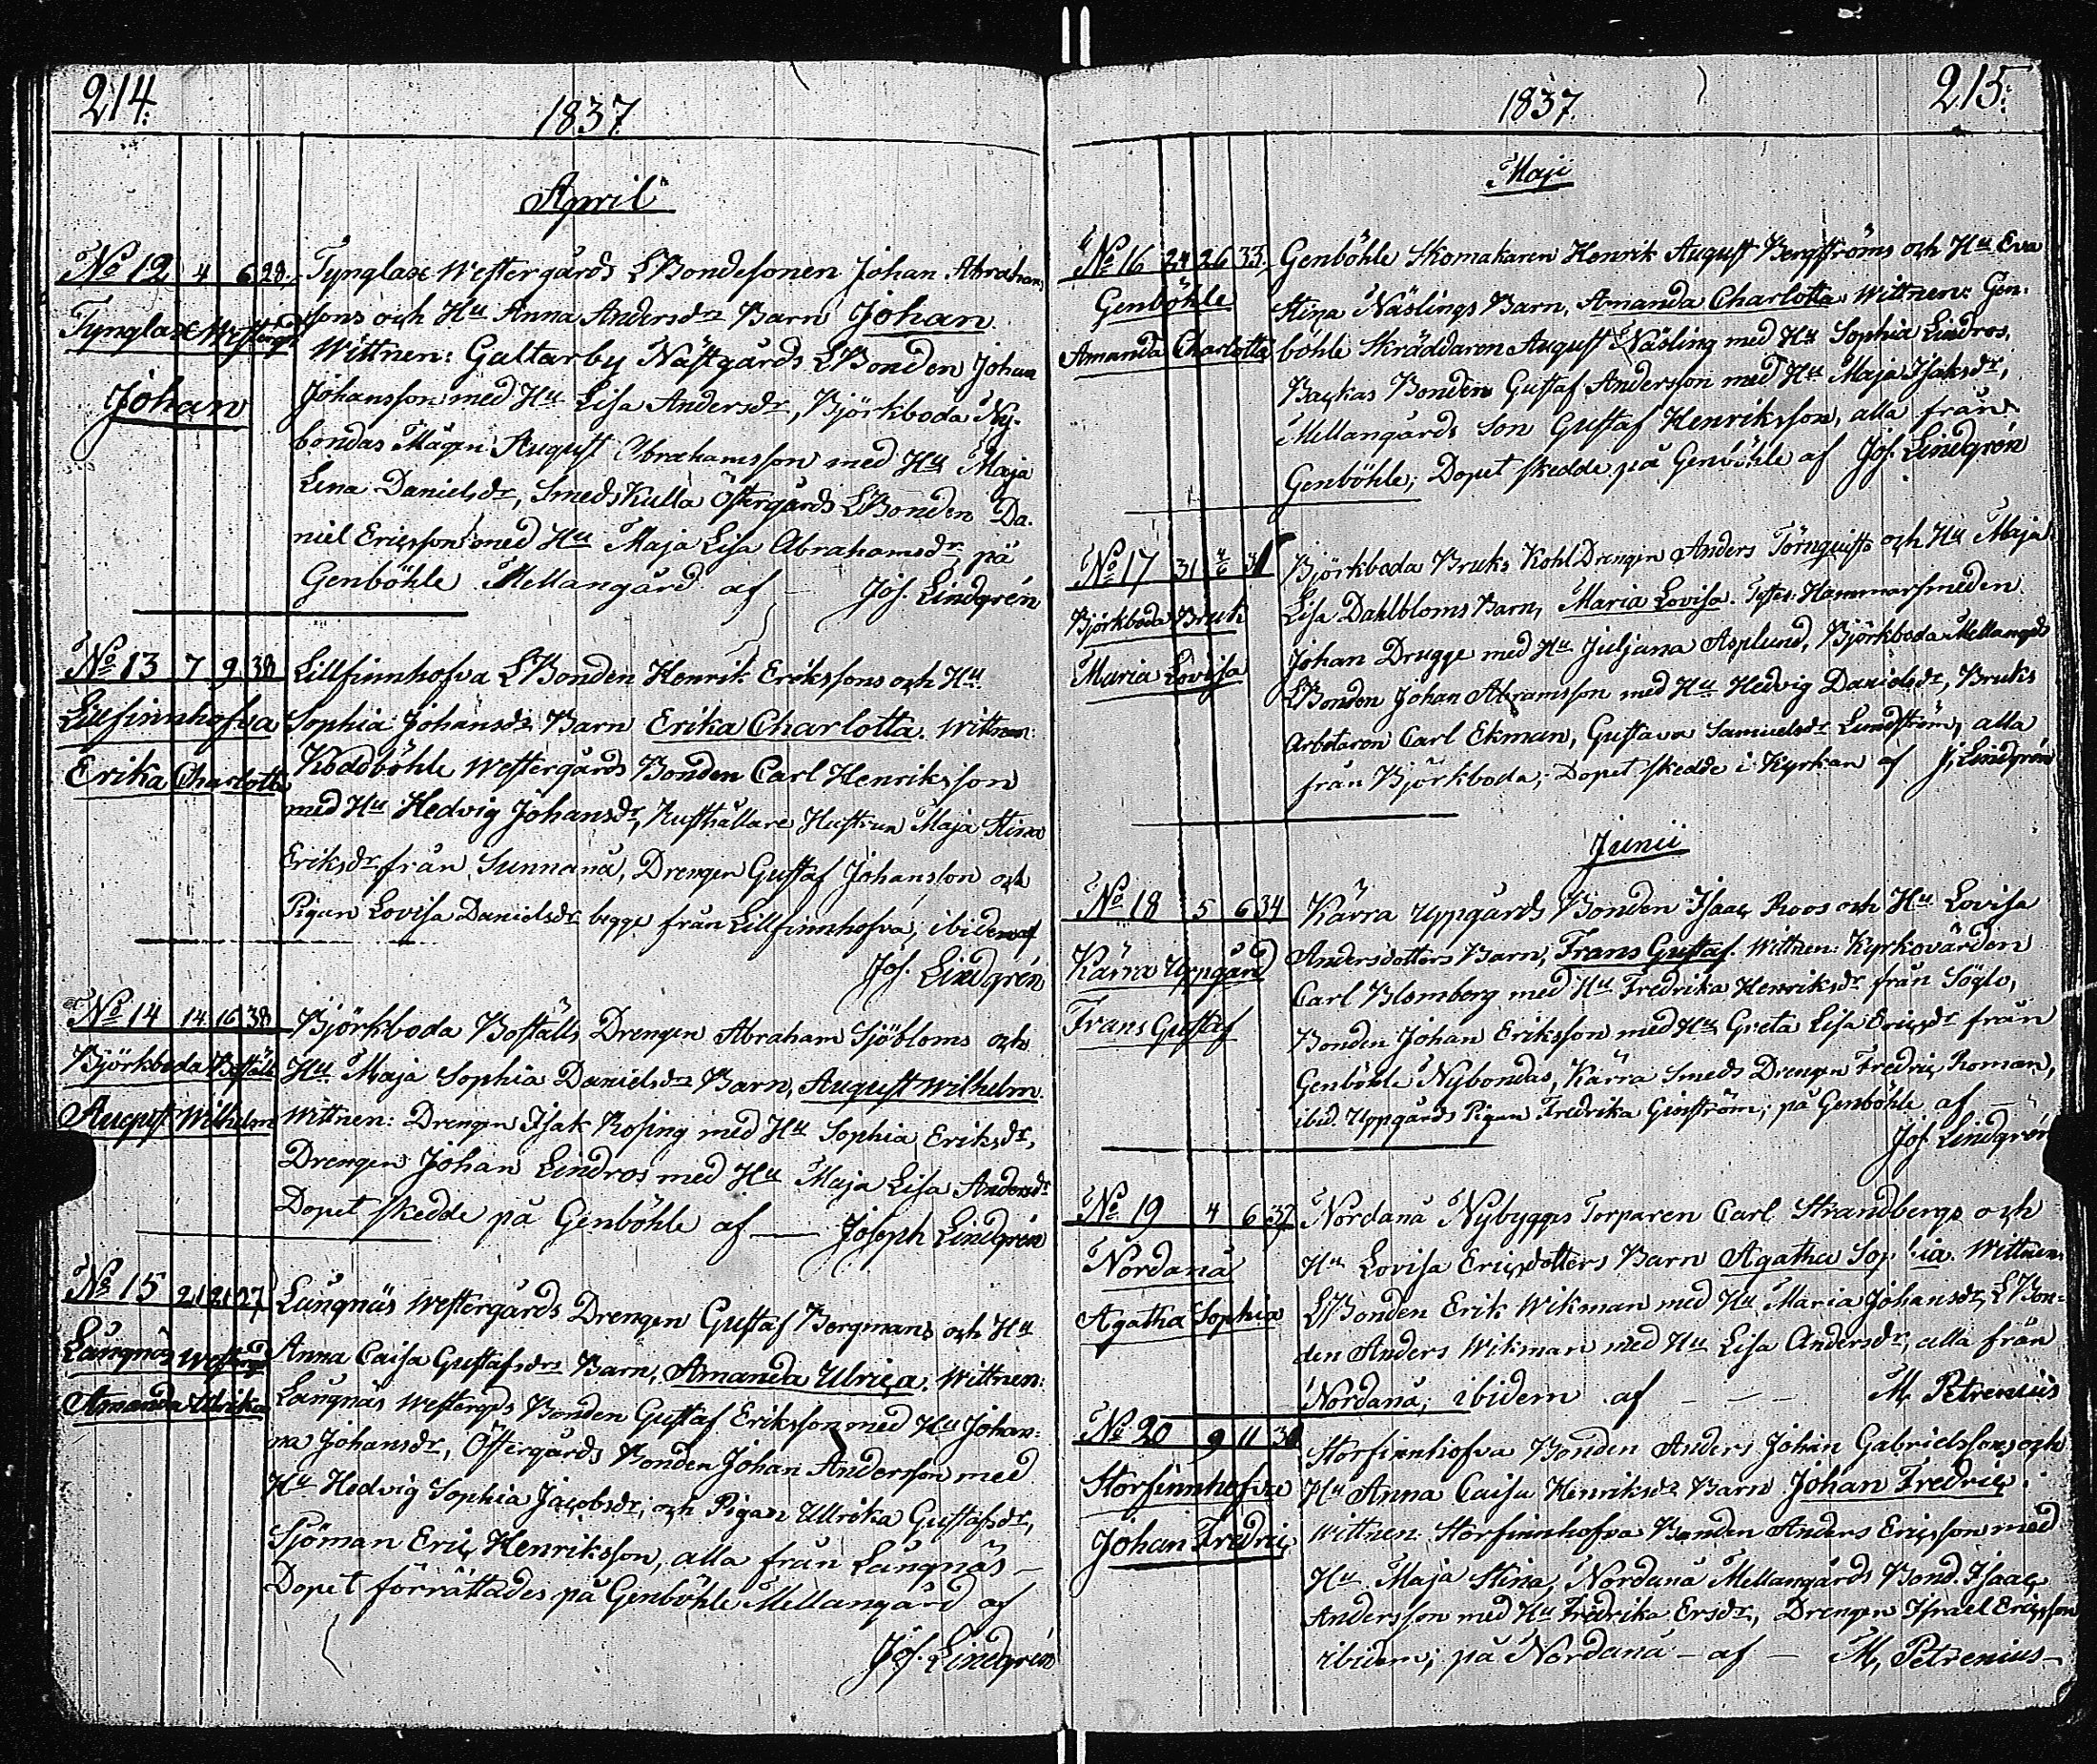 214.
1837.
April
No 12 4 6 28.
Tynglax Westergd
Johan
Tynglax Westergårds LBondesonen Johan Abrahams
sons och Hu Anna Andersdrs Barn Johan.
Wittnen: Galtarby Nästgårds LBonden Johan
Johansson med Hu Lisa Andersdr, Björkboda Ny-
bondas Mågen August Abrahamsson med Hu Maja
Lena Danielsdr, Smedskulla Östergårds LBonden Da-
niel Ericsson med Hu Maja Lisa Abrahamsdr, på
Genböhle Mellangård af — Jos. Lindgrén
No 13 7 9 38
Lillfinnhofva
Erika Charlotta
Lillfinnhofva LBonden Henrik Erikssons och Hu
Sophia Johansdrs Barn Erika Charlotta. Wittnen:
Koddböhle Westergårds Bonden Carl Henriksson
med Hu Hedvig Johansdr, Rusthållare Hustrun Maja Stina
Eriksdr från Sunnanå, Drengen Gustaf Johansson och
Pigan Lovisa Danielsdr begge från Lillfinnhofva, ibidem af
Jos. Lindgrén
No 14 14 16 38
Björkboda Boställ
August Wilhelm
Björkboda Boställs Drengen Abraham Sjöbloms och
Hu Maja Sophia Danielsdrs Barn, August Wilhelm.
Wittnen: Drengen Isak Rosing med Hu Sophia Eriksdr,
Drengen Johan Lindros med Hu Maja Lisa Andersdr
Dopet skedde på Genböhle af — Joseph Lindgrén
No 15 21 21 27
Långnäs Westergd
Amanda Ulrika
Långnäs Westergårds Drengen Gustaf Bergmans och Hu
Anna Caisa Gustafsdrs Barn, Amanda Ulrica. Wittnen:
Långnäs Westergds Bonden Gustaf Eriksson med Hu Johan-
na Johansdr, Östergårds Bonden Johan Andersson med
Hu Hedvig Sophia Jacobsdr, och Pigan Ullrika Gustafsdr,
Sjöman Eric Henriksson, alla från Långnäs —
Dopet förrättades på Genböhle Mellangård af
Jos. Lindgrén
215.
1837.
Maji
No 16 24 26 33.
Genböhle
Amanda Charlotta
Genböhle Skomakaren Henrik August Bergströms och Hu Eva
Stina Näslings Barn, Amanda Charlotta. Wittnen: Gen-
böhle Skräddaren August Näsling med Hu Sophia Lindros,
Backas Bonden Gustaf Andersson med Hu Maja Isaksdr,
Mellangårds Son Gustaf Henriksson, alla från
Genböhle; Dopet skedde på Genböhle af Jos. Lindgrén
No 17 31 4/6 31
Björkboda Bruk
Maria Lovisa
Björkboda Bruks KohlDrengen Anders Törnquists och Hu Maja
Lisa Dahlbloms Barn, Maria Lovisa. Testes: Hammarsmeden
Johan Drugge med Hu Juljana Asplund, Björkboda Mellangds
LBonden Johan Abramsson med Hu Hedvig Danielsdr, Bruks
Arbetaren Carl Ekman, Gustava Samuelsdr Lundström, alla
från Björkboda; Dopet skedde i Kyrkan af J. Lindgrén
Junii
No 18 5 6 34
Kärra Uppgård
Frans Gustaf
Kärra Uppgårds Bonden Isaac Roos och Hu Lovisa
Andersdotters Barn, Frans Gustaf. Wittnen: Kyrkovärden
Carl Blomberg med Hu Fredrika Henriksdr från Söglo,
Bonden Johan Eriksson med Hu Greta Lisa Ericsdr från
Genböhle Nybondas, Kärra Smeds Drengen Fredric Roman,
ibid. Uppgårds Pigan Fredrika Ginström; på Genböhle af —
Jos. Lindgrén
No 19 4 6 37
Nordanå
Agatha Sophia
Nordanå Nybygges Torparen Carl Strandbergs och
Hu Lovisa Ericsdotters Barn Agatha Sophia. Wittnen:
LBonden Erik Wikman med Hu Maria Johansdr, LBon-
den Anders Wikman med Hu Lisa Andersdr, alla från
Nordanå; ibidem af — — M. Petrenius
No 20 9 11 30
Storfinnhofva
Johan Fredric
Storfinnhofva Bonden Anders Johan Gabrielssons och
Hu Anna Caisa Henriksdrs Barn Johan Fredric.
Wittnen: Storfinnhofva Bonden Anders Ericsson med
Hu Maja Stina, Nordanå Mellangårds Bond. Isaac
Andersson med Hu Fredrika Ersdr, Drengen Israel Ericsson
ibidem; på Nordanå — af — M. Petrenius —